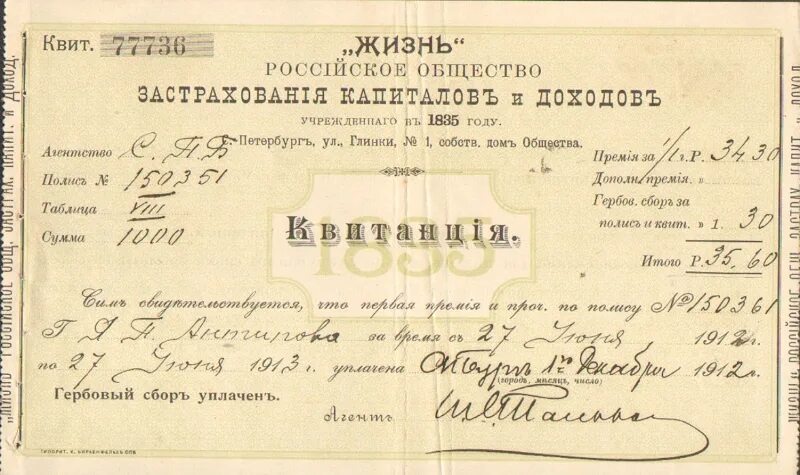 Квит. 77736
„ЖИЗНЬ“
РОССІЙСКОЕ ОБЩЕСТВО
ЗАСТРАХОВАНІЯ КАПИТАЛОВЪ и ДОХОДОВЪ
УЧРЕЖДЕННАГО ВЪ 1835 ГОДУ.
С.-Петербургъ, ул., Глинки, № 1, собств. домъ Общества.
Агентство С. П. Б
Полисъ № 150351
Таблица VIII
Сумма 1000
Премія за 1/1 г. Р. 34.30
Дополн. премія. „
Гербов. сборъ за
полисъ и квит. „ 1. 30
Итого Р. 35,60
1835
Квитанція.
Симъ свидѣтельствуется, что первая премія и проч. по полису № 150361
Г за время съ 27 Іюня 1912 г.
по 27 Іюня 1913 г. уплачена 1го Декабря 1912 г.
(городъ, мѣсяцъ, число)
Гербовый сборъ уплаченъ.
Агентъ